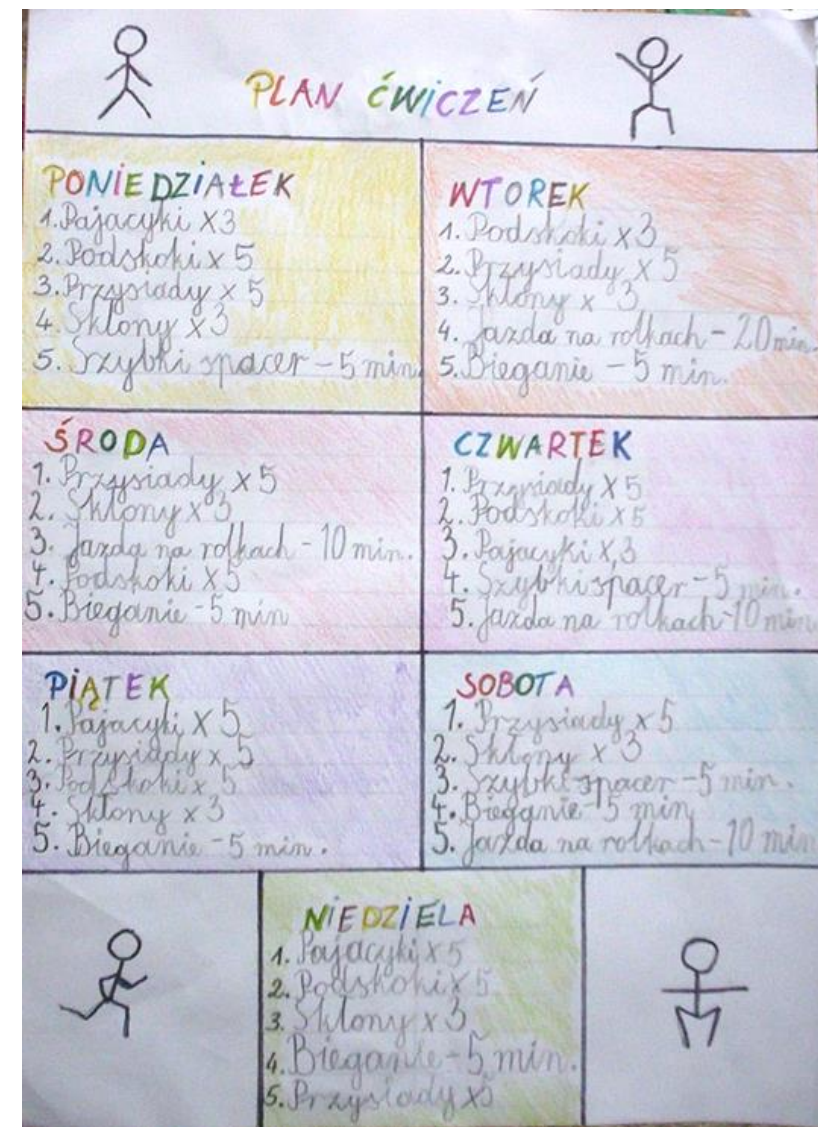 PLAN ĆWICZEŃ
PONIEDZIAŁEK
1. Pajacyki x3
2. Podskoki x 5
3. Przysiady x 5
4. Skłony x3
5. Szybki spacer - 5 min.
WTOREK
1. Podskoki x3
2. Przysiady x5
3. Skłony x 3
4. Jazda na rolkach - 20 min.
5. Bieganie - 5 min.
ŚRODA
1. Przysiady x5
2. Skłony x3
3. Jazda na rolkach - 10 min.
4. Podskoki x5
5. Bieganie - 5 min
CZWARTEK
1. Przysiady x5
2. Podskoki x5
3. Pajacyki x3
4. Szybki spacer - 5 min.
5. Jazda na rolkach - 10 min
PIĄTEK
1. Pajacyki x 5
2. Przysiady x 5
3. Podskoki x 5
4. Skłony x3
5. Bieganie - 5 min.
SOBOTA
1. Przysiady x5
2. Skłony x3
3. Szybki spacer - 5 min.
4. Bieganie - 5 min
5. Jazda na rolkach - 10 min
NIEDZIELA
1. Pajacyki x5
2. Podskoki x5
3. Skłony x3
4. Bieganie - 5 min.
5. Przysiady x5